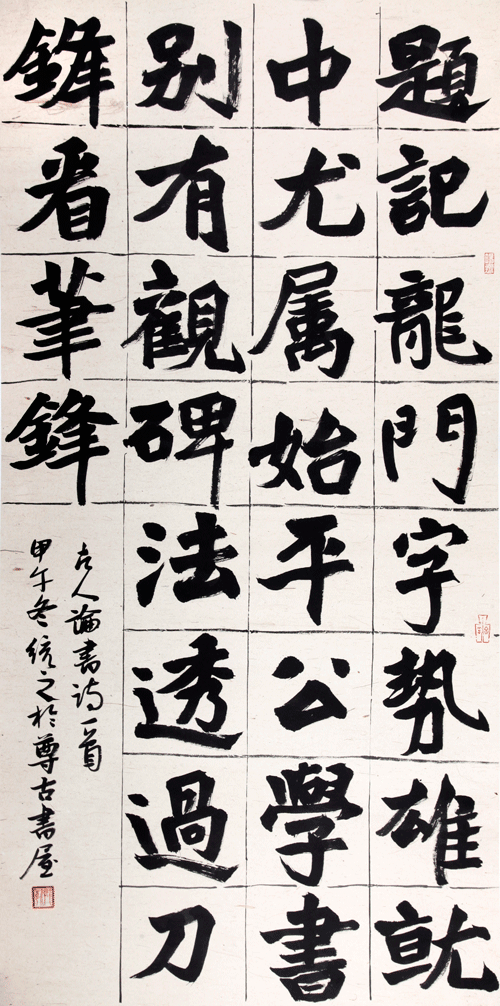 題記龍門字勢雄就
中尤属始平公學書
别有觀碑法透過刀
鋒看筆鋒
古人論書詩一首
甲午冬之於尊古書屋